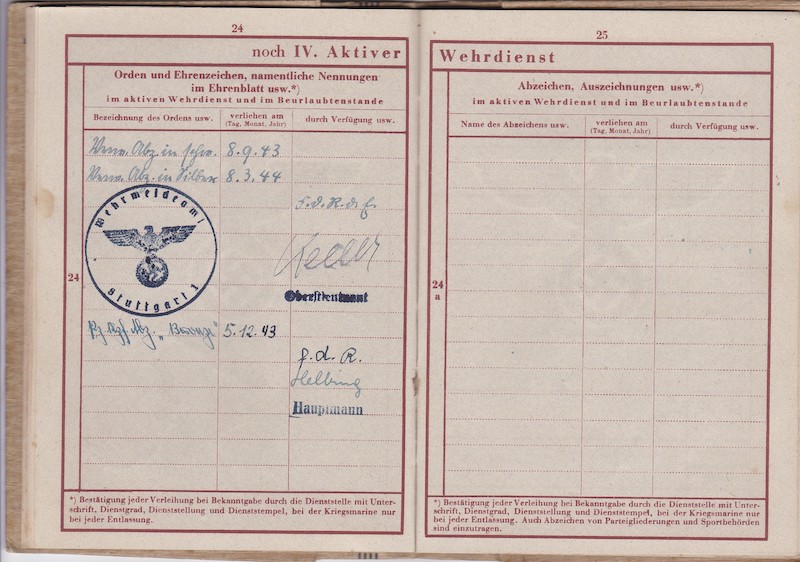 24
noch IV. Aktiver
Orden und Ehrenzeichen, namentliche Nennungen
im Ehrenblatt usw.*)
im aktiven Wehrdienst und im Beurlaubtenstande
Bezeichnung des Ordens usw.
verliehen am
(Tag, Monat, Jahr)
durch Verfügung usw.
Verw. Abz. in schw. 8.9.43
Verw. Abz. in Silber 8.3.44
Wehrmeldeamt
Stuttgart 1
F.d.R.d.E.
Keller
24
Oberstleutnant
Pz. Kpf. Abz. „Bronze" 5.12.43
f.d.R.
Helbing
Hauptmann
*) Bestätigung jeder Verleihung bei Bekanntgabe durch die Dienststelle mit Unter-
schrift, Dienstgrad, Dienststellung und Dienststempel, bei der Kriegsmarine nur
bei jeder Entlassung.
25
Wehrdienst
Abzeichen, Auszeichnungen usw.*)
im aktiven Wehrdienst und im Beurlaubtenstande
Name des Abzeichens usw.
verliehen am
(Tag, Monat, Jahr)
durch Verfügung usw.
24
a
*) Bestätigung jeder Verleihung bei Bekanntgabe durch die Dienststelle mit Unter-
schrift, Dienstgrad, Dienststellung und Dienststempel, bei der Kriegsmarine nur
bei jeder Entlassung. Auch Abzeichen von Parteigliederungen und Sportbehörden
sind einzutragen.